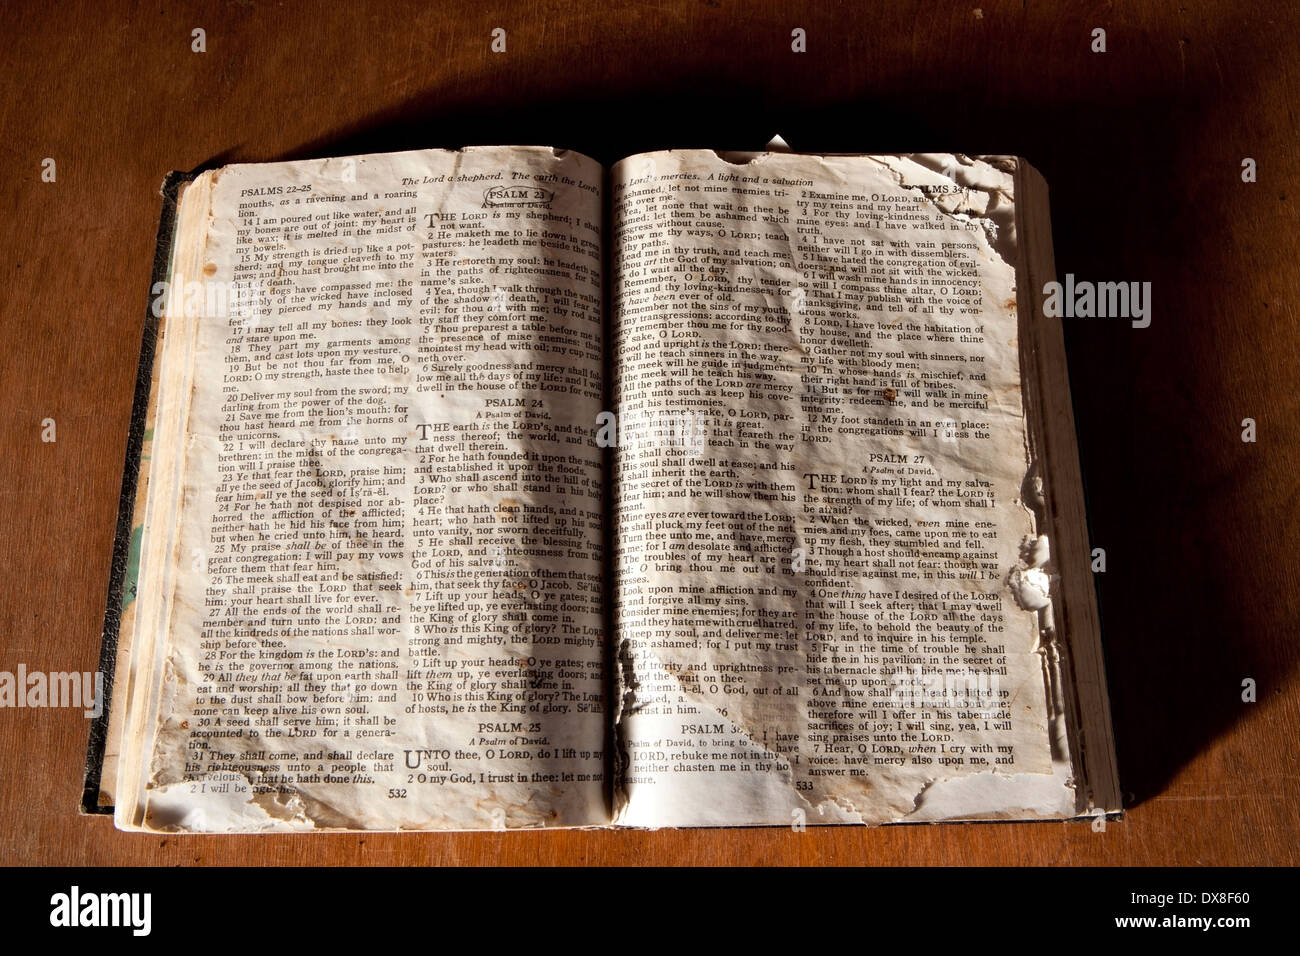 PSALMS 22–25
The Lord a shepherd. The earth the Lord's
mouths, as a ravening and a roaring
lion.
14 I am poured out like water, and all
my bones are out of joint: my heart is
like wax; it is melted in the midst of
my bowels.
15 My strength is dried up like a pot-
sherd; and my tongue cleaveth to my
jaws; and thou hast brought me into the
dust of death.
16 For dogs have compassed me: the
assembly of the wicked have inclosed
me: they pierced my hands and my
feet.
17 I may tell all my bones: they look
and stare upon me.
18 They part my garments among
them, and cast lots upon my vesture.
19 But be not thou far from me, O
LORD: O my strength, haste thee to help
me.
20 Deliver my soul from the sword; my
darling from the power of the dog.
21 Save me from the lion's mouth: for
thou hast heard me from the horns of
the unicorns.
22 I will declare thy name unto my
brethren: in the midst of the congrega-
tion will I praise thee.
23 Ye that fear the LORD, praise him;
all ye the seed of Jacob, glorify him; and
fear him, all ye the seed of Ĭṣ'rā-ĕl.
24 For he hath not despised nor ab-
horred the affliction of the afflicted;
neither hath he hid his face from him;
but when he cried unto him, he heard.
25 My praise shall be of thee in the
great congregation: I will pay my vows
before them that fear him.
26 The meek shall eat and be satisfied:
they shall praise the LORD that seek
him: your heart shall live for ever.
27 All the ends of the world shall re-
member and turn unto the LORD: and
all the kindreds of the nations shall wor-
ship before thee.
28 For the kingdom is the LORD'S: and
he is the governor among the nations.
29 All they that be fat upon earth shall
eat and worship: all they that go down
to the dust shall bow before him: and
none can keep alive his own soul.
30 A seed shall serve him; it shall be
accounted to the LORD for a genera-
tion.
31 They shall come, and shall declare
his righteousness unto a people that
that he hath done this.
2 I will be
PSALM 23
A Psalm of David.
THE LORD is my shepherd; I shall
not want.
2 He maketh me to lie down in green
pastures: he leadeth me beside the still
waters.
3 He restoreth my soul: he leadeth me
in the paths of righteousness for his
name's sake.
4 Yea, though I walk through the valley
of the shadow of death, I will fear no
evil: for thou art with me; thy rod and
thy staff they comfort me.
5 Thou preparest a table before me in
the presence of mine enemies: thou
anointest my head with oil; my cup run-
neth over.
6 Surely goodness and mercy shall fol-
low me all the days of my life: and I will
dwell in the house of the LORD for ever.
PSALM 24
A Psalm of David.
THE earth is the LORD'S, and the ful-
ness thereof; the world, and they
that dwell therein.
2 For he hath founded it upon the seas,
and established it upon the floods.
3 Who shall ascend into the hill of the
LORD? or who shall stand in his holy
place?
4 He that hath clean hands, and a pure
heart; who hath not lifted up his soul
unto vanity, nor sworn deceitfully.
5 He shall receive the blessing from
the LORD, and righteousness from the
God of his salvation.
6 This is the generation of them that seek
him, that seek thy face, O Jacob. Sē'lăh.
7 Lift up your heads, O ye gates; and
be ye lifted up, ye everlasting doors; and
the King of glory shall come in.
8 Who is this King of glory? The LORD
strong and mighty, the LORD mighty in
battle.
9 Lift up your heads, O ye gates; even
lift them up, ye everlasting doors; and
the King of glory shall come in.
10 Who is this King of glory? The LORD
of hosts, he is the King of glory. Sē'lăh.
PSALM 25
A Psalm of David.
UNTO thee, O LORD, do I lift up my
soul.
2 O my God, I trust in thee: let me not
532
The Lord's mercies. A light and a salvation
PSALMS
ashamed, let not mine enemies tri-
umph over me.
Yea, let none that wait on thee be
ashamed: let them be ashamed which
transgress without cause.
Show me thy ways, O LORD; teach
me thy paths.
Lead me in thy truth, and teach me:
thou art the God of my salvation; on
thee do I wait all the day.
Remember, O LORD, thy tender
mercies and thy loving-kindnesses; for
they have been ever of old.
Remember not the sins of my youth,
nor my transgressions: according to thy
mercy remember thou me for thy good-
ness' sake, O LORD.
Good and upright is the LORD: there-
fore will he teach sinners in the way.
The meek will he guide in judgment:
and the meek will he teach his way.
All the paths of the LORD are mercy
and truth unto such as keep his cove-
nant and his testimonies.
For thy name's sake, O LORD, par-
don mine iniquity; for it is great.
What man is he that feareth the
LORD? him shall he teach in the way
that he shall choose.
His soul shall dwell at ease; and his
seed shall inherit the earth.
The secret of the LORD is with them
that fear him; and he will show them his
covenant.
Mine eyes are ever toward the LORD;
for he shall pluck my feet out of the net.
Turn thee unto me, and have mercy
upon me; for I am desolate and afflicted.
The troubles of my heart are en-
larged: O bring thou me out of my
distresses.
Look upon mine affliction and my
pain; and forgive all my sins.
Consider mine enemies; for they are
many; and they hate me with cruel hatred.
O keep my soul, and deliver me: let
me not be ashamed; for I put my trust
integrity and uprightness pre-
serve me; for I wait on thee.
O God, out of all
PSALM 26
2 Examine me, O LORD, and
try my reins and my heart.
3 For thy loving-kindness is
mine eyes: and I have walked in thy
truth.
4 I have not sat with vain persons,
neither will I go in with dissemblers.
5 I have hated the congregation of evil-
doers; and will not sit with the wicked.
6 I will wash mine hands in innocency:
so will I compass thine altar, O LORD:
7 That I may publish with the voice of
thanksgiving, and tell of all thy won-
drous works.
8 LORD, I have loved the habitation of
thy house, and the place where thine
honor dwelleth.
9 Gather not my soul with sinners, nor
my life with bloody men:
10 In whose hands is mischief, and
their right hand is full of bribes.
11 But as for me, I will walk in mine
integrity: redeem me, and be merciful
unto me.
12 My foot standeth in an even place:
in the congregations will I bless the
LORD.
PSALM 27
A Psalm of David.
THE LORD is my light and my salva-
tion; whom shall I fear? the LORD is
the strength of my life; of whom shall I
be afraid?
2 When the wicked, even mine ene-
mies and my foes, came upon me to eat
up my flesh, they stumbled and fell.
3 Though a host should encamp against
me, my heart shall not fear: though war
should rise against me, in this will I be
confident.
4 One thing have I desired of the LORD,
that will I seek after; that I may dwell
in the house of the LORD all the days
of my life, to behold the beauty of the
LORD, and to inquire in his temple.
5 For in the time of trouble he shall
hide me in his pavilion: in the secret of
his tabernacle shall he hide me; he shall
set me up upon a rock.
6 And now shall mine head be lifted up
above mine enemies round about me:
therefore will I offer in his tabernacle
sacrifices of joy; I will sing, yea, I will
sing praises unto the LORD.
7 Hear, O LORD, when I cry with my
voice: have mercy also upon me, and
answer me.
533
a alamy
alamy
Image ID: DX8F60
www.alamy.com